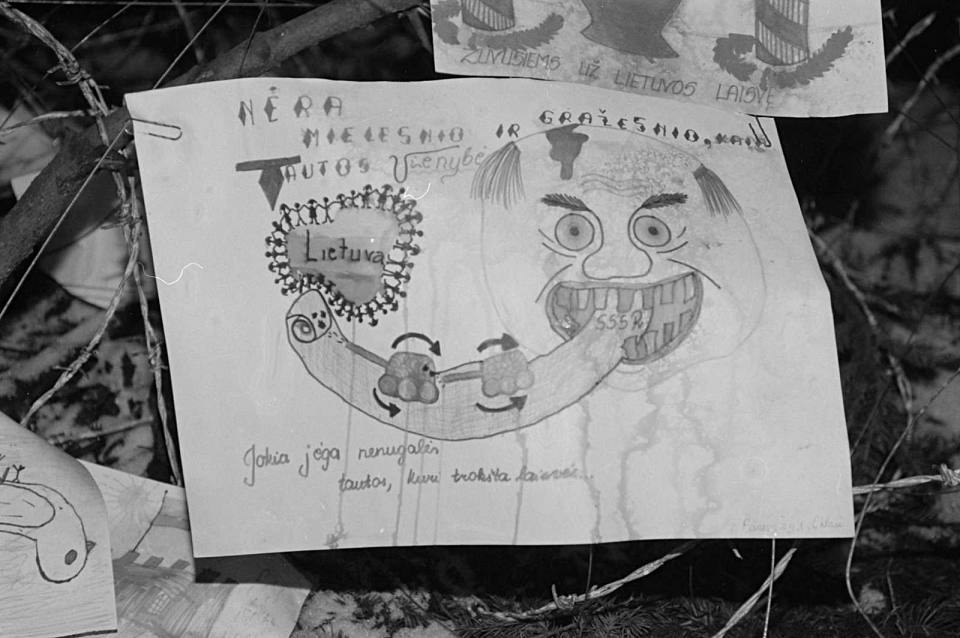 ŽUVUSIEMS UŽ LIETUVOS LAISVĘ
NĖRA
MIELESNIO IR GRAŽESNIO, KAIP
TAUTOS Vienybė
Lietuva
SSSR
Jokia jėga nenugalės
tautos, kuri trokšta laisvės...